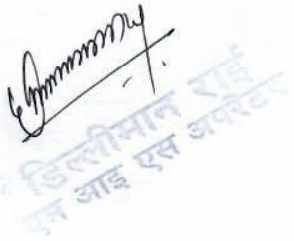 डिल्लीमान राई
एम आइ एस अपरेटर